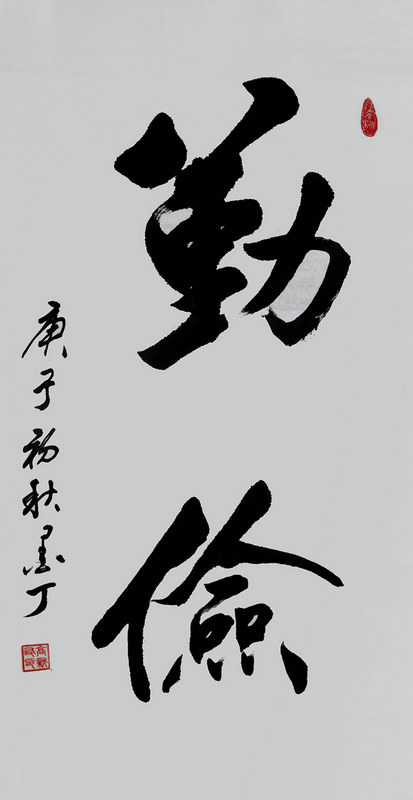 勤儉
庚子初秋墨丁